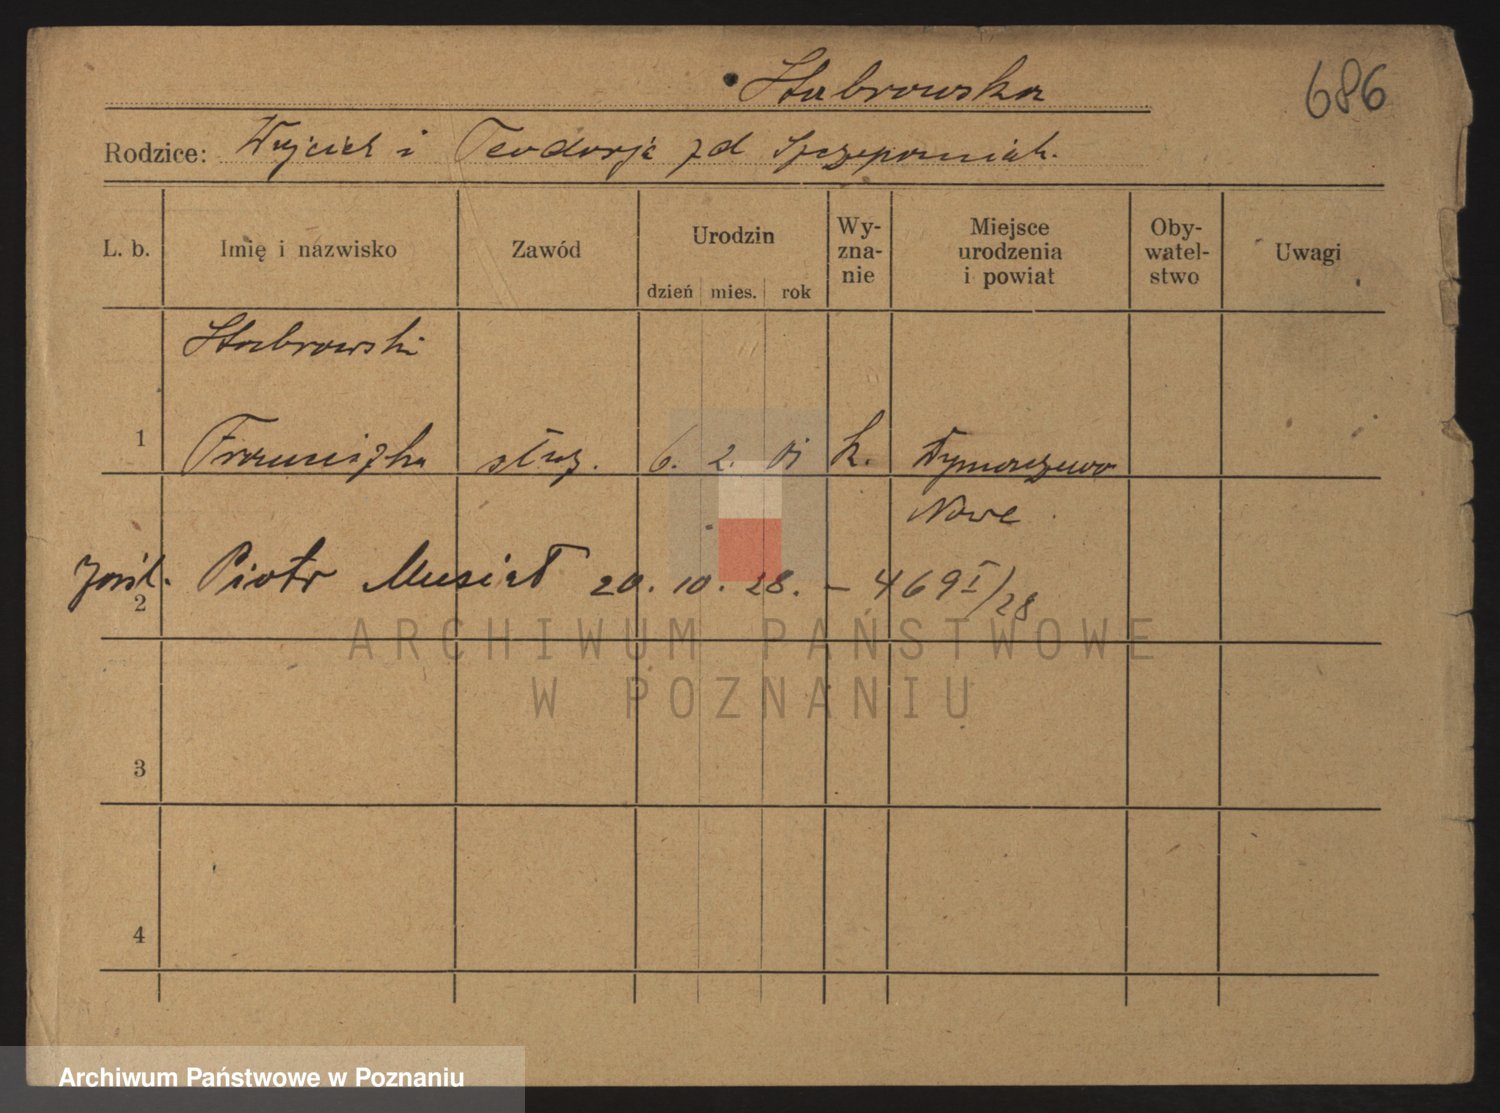 Stabrowska
686
Rodzice: Wojciech i Teodorja zd Szczepaniak.
L. b. Imię i nazwisko Zawód Urodzin dzień mies. rok Wy-zna-nie Miejsce urodzenia i powiat Oby-watel-stwo Uwagi
Stabrowski
1 Franciszka służ. 6. 2. 01 k. Tymoczewo
Nowe
zaśl. Piotr Musiał 20. 10. 28. – 469 I/28
2
ARCHIWUM PAŃSTWOWE
W POZNANIU
3
4
Archiwum Państwowe w Poznaniu